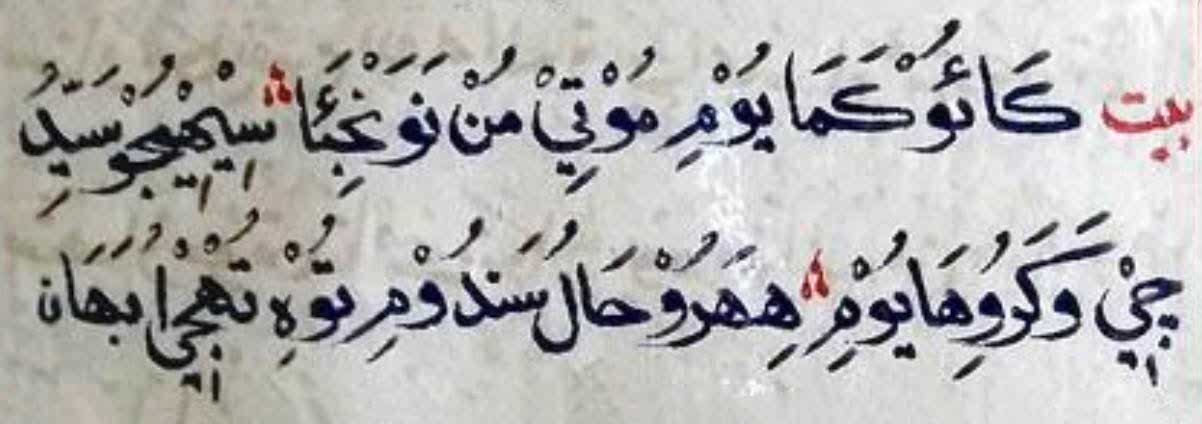 بيت كَائُوْ كَمَا يُوْمِ مُوْتِيْ مُنْ نَوَنَجِئَا ؞ سِيْهِيْجُوْ سَيِّدُ
جِيْ وَكَرُوِهَا يُوْمِ ؞ هِهَرُوْ حَالُ سَنْدُوْمِ تُوْهِ تُهْجِيْ اُبُهَانِ